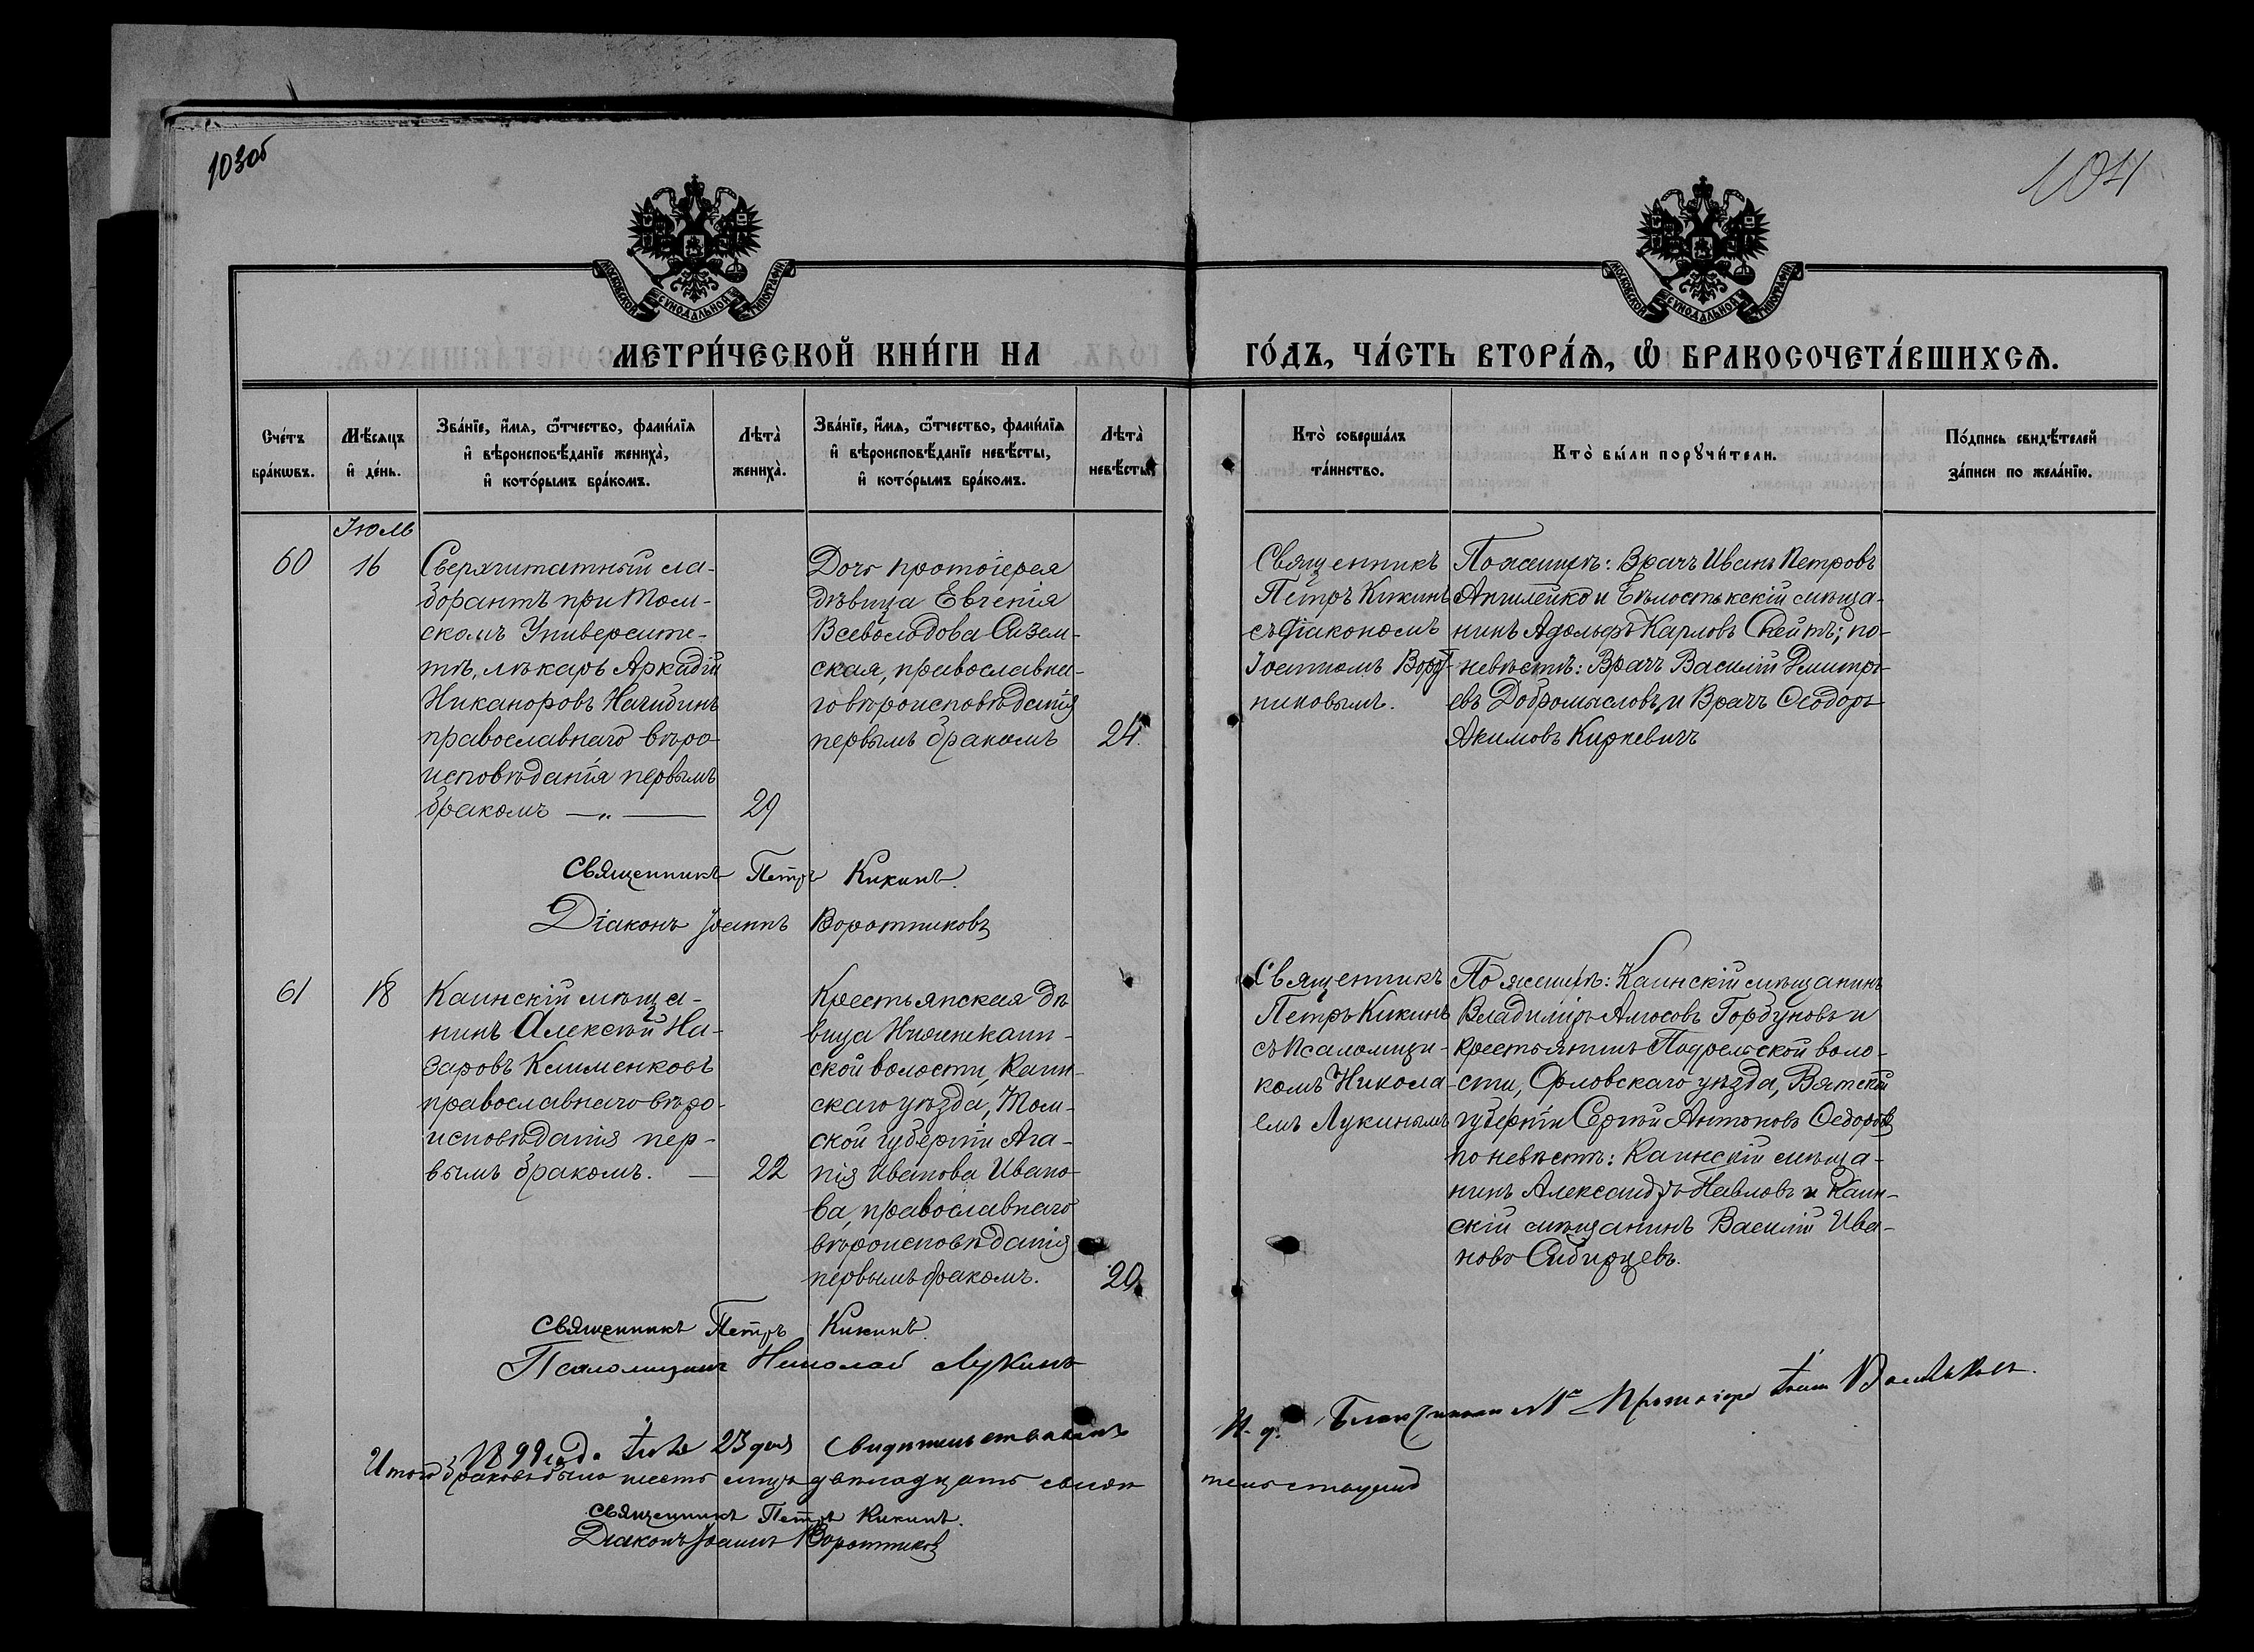 103об
104
МОСКОВСКОЙ СѴНОДАЛЬНОЙ ТИПОГРАФІИ
МОСКОВСКОЙ СѴНОДАЛЬНОЙ ТИПОГРАФІИ
МЕТРИ́ЧЕСКОЙ КНИ́ГИ НА
ГО́ДЪ, ЧА́СТЬ ВТОРА́Я, Ѡ БРАКОСОЧЕТА́ВШИХСЯ.
Сче́тъ бра́кѡвъ.
Мѣ́сяцъ и де́нь.
Зва́нїе, и́мя, ѻ҆́тчество, фами́лїя
и вѣроисповѣ́данїе жениха̀,
и кото́рымъ бра́комъ.
Лѣта̀ жениха̀.
Зва́нїе, и́мя, ѻ҆́тчество, фами́лїя
и вѣроисповѣ́данїе невѣ́сты,
и кото́рымъ бра́комъ.
Лѣта̀ невѣ́сты.
Кто̀ соверша́лъ
та́инство.
Кто̀ бы́ли порꙋчи́тели.
По́дпись свидѣ́телей
за́писи по жела́нїю.
Іюль
60
16
Сверхштатный ла-
борантъ при Том-
скомъ Университе-
тѣ, лѣкарь Аркадій
Никаноровъ Нагибинъ
православнаго вѣро-
исповѣданія первымъ
бракомъ — „ —
29
Дочь протоіерея
дѣвица Евгенія
Всеволодова Сизем-
ская, православна-
го вѣроисповѣданія
первымъ бракомъ
24.
Священникъ
Петръ Кикинъ
съ діакономъ
Іоанномъ Ворот-
никовымъ.
По женихѣ: Врачъ Иванъ Петровъ
и Бѣлостокскій мѣща-
нинъ Адольфъ Карловъ; по
невѣстѣ: Врачъ Василій Дмитрі-
евъ Добромысловъ, и Врачъ Ѳеодоръ
Акимовъ Киркевичъ
Священникъ Петръ Кикинъ.
Діаконъ Іоаннъ Воротниковъ
61
18
Каинскій мѣща-
нинъ Алексѣй На-
заровъ Клименковъ
православнаго вѣро-
исповѣданія пер-
вымъ бракомъ. —
22
Крестьянская дѣ-
вица Нижнекаин-
ской волости, Каин-
скаго уѣзда, Том-
ской губерніи Ага-
пія Иванова Ивано-
ва, православнаго
вѣроисповѣданія
первымъ бракомъ.
20.
Священникъ
Петръ Кикинъ
съ псаломщи-
комъ Никола-
емъ Лукинымъ
По женихѣ: Каинскій мѣщанинъ
Владиміръ Амосовъ Горбуновъ и
крестьянинъ воло-
сти, Орловскаго уѣзда, Вятской
губерніи Сергѣй Антоновъ Ѳедоровъ
по невѣстѣ: Каинскій мѣща-
нинъ Александръ Павловъ и Каин-
скій мѣщанинъ Василій Ива-
новъ Сибирцевъ.
Священникъ Петръ Кикинъ.
Псаломщикъ Николай Лукинъ
1899 года Іюля 23 дня свидѣтельствовалъ
И. д. Благочиннаго № 1 Протоіерей
Итого браковъ было шесть
Священникъ Петръ Кикинъ.
Діаконъ Іоаннъ Воротниковъ